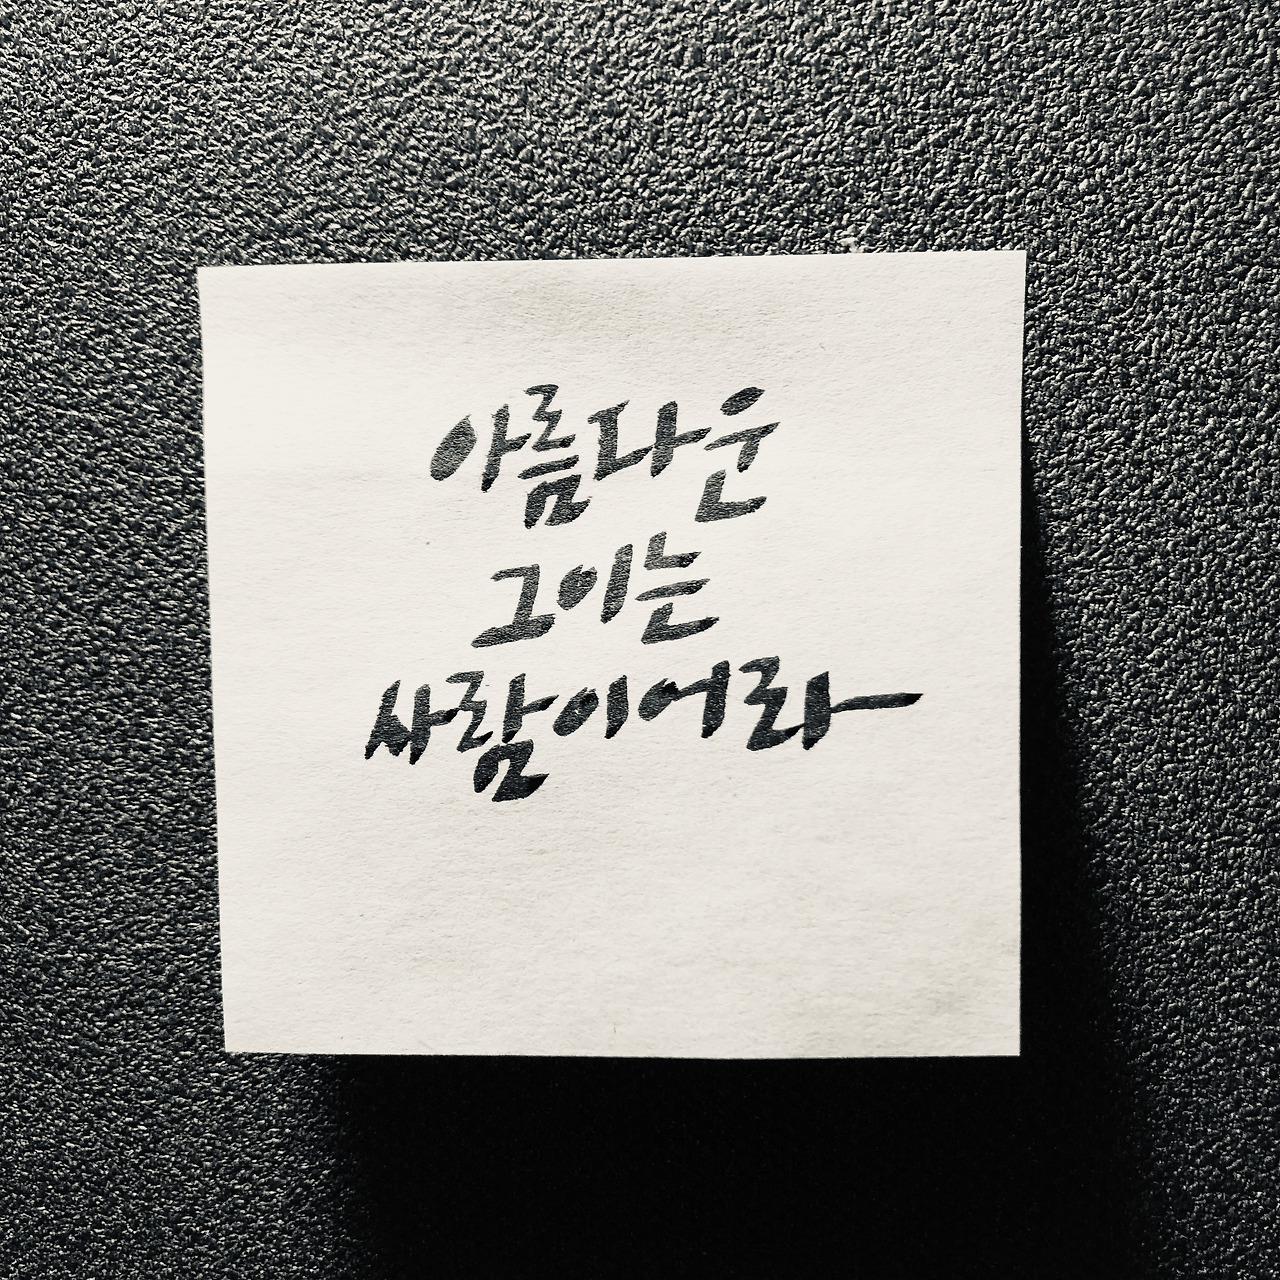 아름다운
그이는
사람이어라